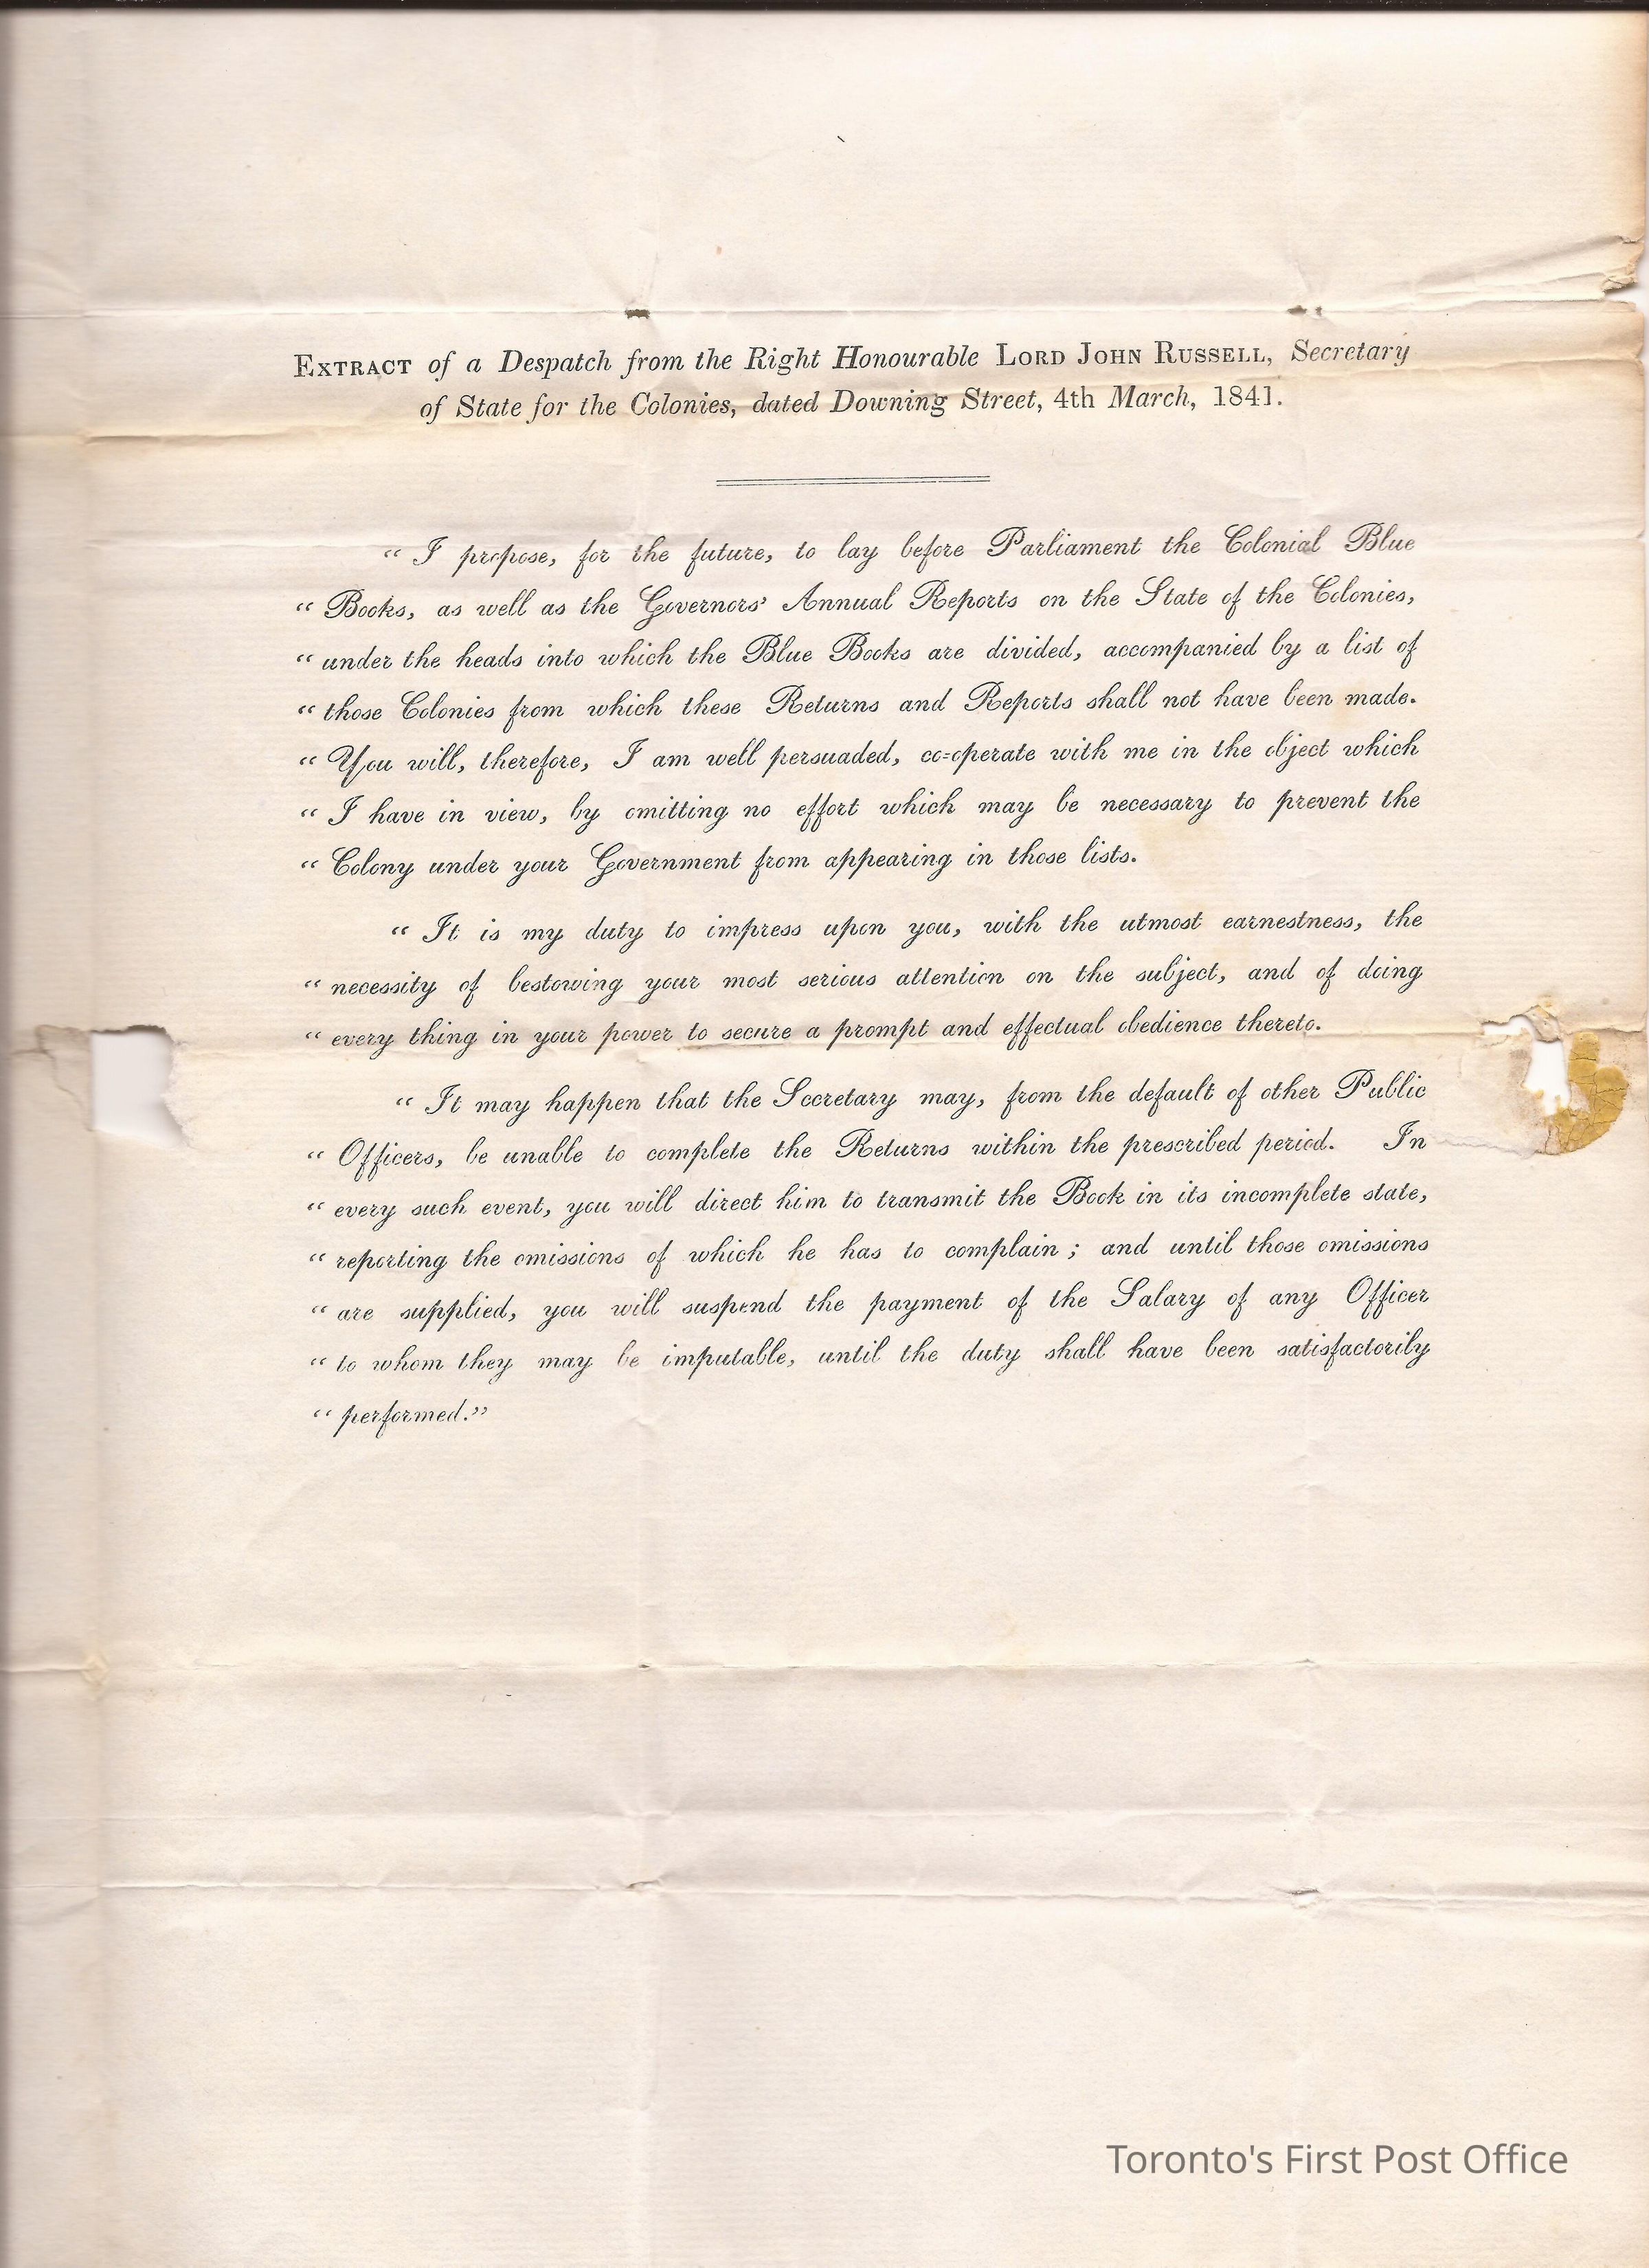 EXTRACT of a Despatch from the Right Honourable LORD JOHN RUSSELL, Secretary
of State for the Colonies, dated Downing Street, 4th March, 1841.
“ I propose, for the future, to lay before Parliament the Colonial Blue
“ Books, as well as the Governors’ Annual Reports on the State of the Colonies,
“ under the heads into which the Blue Books are divided, accompanied by a list of
“ those Colonies from which these Returns and Reports shall not have been made.
“ You will, therefore, I am well persuaded, co=operate with me in the object which
“ I have in view, by omitting no effort which may be necessary to prevent the
“ Colony under your Government from appearing in those lists.
“ It is my duty to impress upon you, with the utmost earnestness, the
“ necessity of bestowing your most serious attention on the subject, and of doing
“ every thing in your power to secure a prompt and effectual obedience thereto.
“ It may happen that the Secretary may, from the default of other Public
“ Officers, be unable to complete the Returns within the prescribed period. In
“ every such event, you will direct him to transmit the Book in its incomplete state,
“ reporting the omissions of which he has to complain ; and until those omissions
“ are supplied, you will suspend the payment of the Salary of any Officer
“ to whom they may be imputable, until the duty shall have been satisfactorily
“ performed.”
Toronto's First Post Office